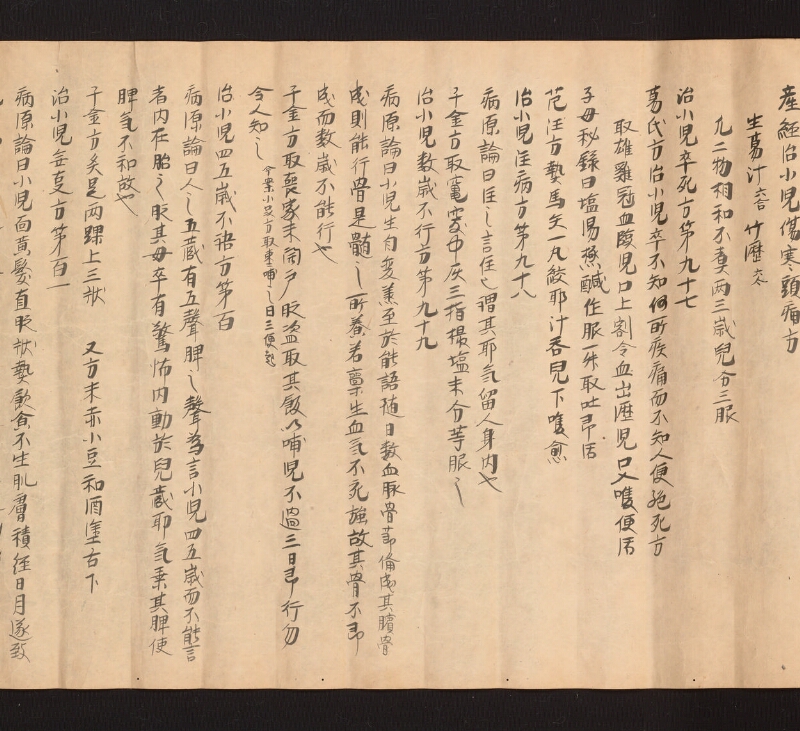 産經治小兒傷寒頭痛方
生葛汁六合 竹瀝六合
凡二物相和不煮兩三歲兒分三服
治小兒卒死方第九十七
葛氏方治小兒卒不知何所疾痛而不知人便絶死方
取雄雞冠血臨兒口上割令血出瀝兒口入喉便活
子母秘録曰塩湯熱鹹作服一升取吐即活
范汪方熱馬矢一丸絞取汁呑兒下喉愈
治小兒注病方第九十八
病源論曰注之言住也謂其耶氣留人身内也
千金方取竈突中灰三指撮塩末分等服之
治小兒數歲不行方第九十九
病源論曰小兒生自變蒸至於能語随日數血脉骨節備成其臏骨
成則能行骨是髓之所養若稟生血氣不充強故其骨不即
成而數歲不能行也
千金方取喪家未開戸服盗取其飯以哺兒不過三日即行勿
令人知之今案小品方取来哺之日三便起
治小兒四五歲不語方第百
病源論曰人之五藏有五聲脾之聲為言小兒四五歲而不能言
者内在胎之服其母卒有驚怖内動於兒藏耶氣乗其脾使
脾氣不和故也
千金方灸足兩踝上三壯 又方末赤小豆和酒塗舌下
治小兒無辜方第百一
病源論曰小兒面黄髮直服壯熱飲食不生肌膚積経日月遂致